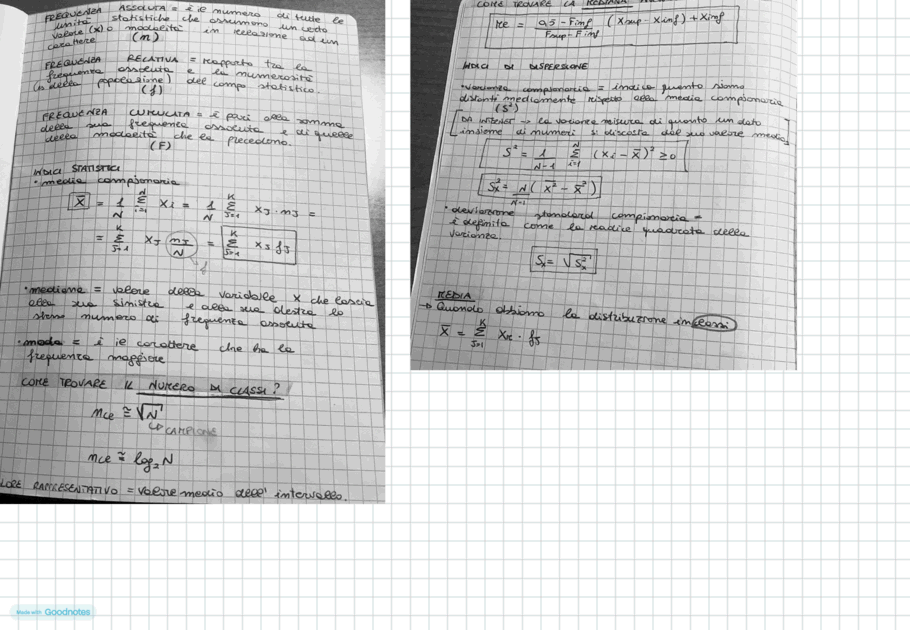 FREQUENZA ASSOLUTA = è il numero di tutte le
unità statistiche che assumono un certo
valore (x) o modalità in relazione ad un
carattere (n)
FREQUENZA RELATIVA = rapporto tra la
frequenza assoluta e la numerosità
(o della popolazione) del campo statistico.
(f)
FREQUENZA CUMULATA = è pari alla somma
della sua frequenza assoluta e di quelle
della modalità che la precedono.
(F)
INDICI STATISTICI
• media campionaria
X̄ = 1/N Σ(i=1, N) xi = 1/N Σ(J=1, K) xJ · nJ =
= Σ(J=1, K) xJ nJ/N = Σ(J=1, K) xJ fJ
f
• mediana = valore della variabile x che lascia
alla sua sinistra e alla sua destra lo
stesso numero di frequenza assoluta
• moda = è il carattere che ha la
frequenza maggiore
COME TROVARE IL NUMERO DI CLASSI?
ncl ≅ √N
↳ CAMPIONE
ncl ≅ log₂ N
VALORE RAPPRESENTATIVO = valore medio dell' intervallo.
COME TROVARE LA MEDIANA
Me = (0,5 - Finf)/(Fsup - Finf) (Xsup - Xinf) + Xinf
INDICI DI DISPERSIONE
• varianza campionaria = indica quanto siamo
distanti mediamente rispetto alla media campionaria
(S²)
[DA INTERNET → la varianza misura di quanto un dato
insieme di numeri si discosta dal suo valore medio]
S² = 1/(N-1) Σ(i=1, N) (xi - x̄)² ≥ 0
Sx² = N/(N-1) (x̄² - x̄²)
• deviazione standard campionaria =
è definita come la radice quadrata della
varianza.
Sx = √Sx²
MEDIA
→ Quando abbiamo la distribuzione in classi
X̄ = Σ(J=1, K) XR · fJ
Made with Goodnotes